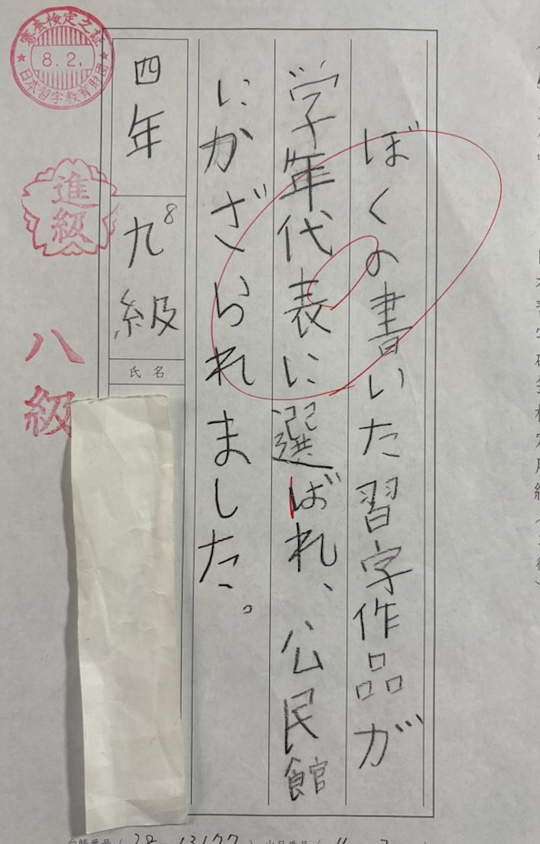 ぼくの書いた習字作品が
学年代表に選ばれ、公民館
にかざられました。
四年
九級
8
氏名
8.2.
日本習字教育財団
進級
八級